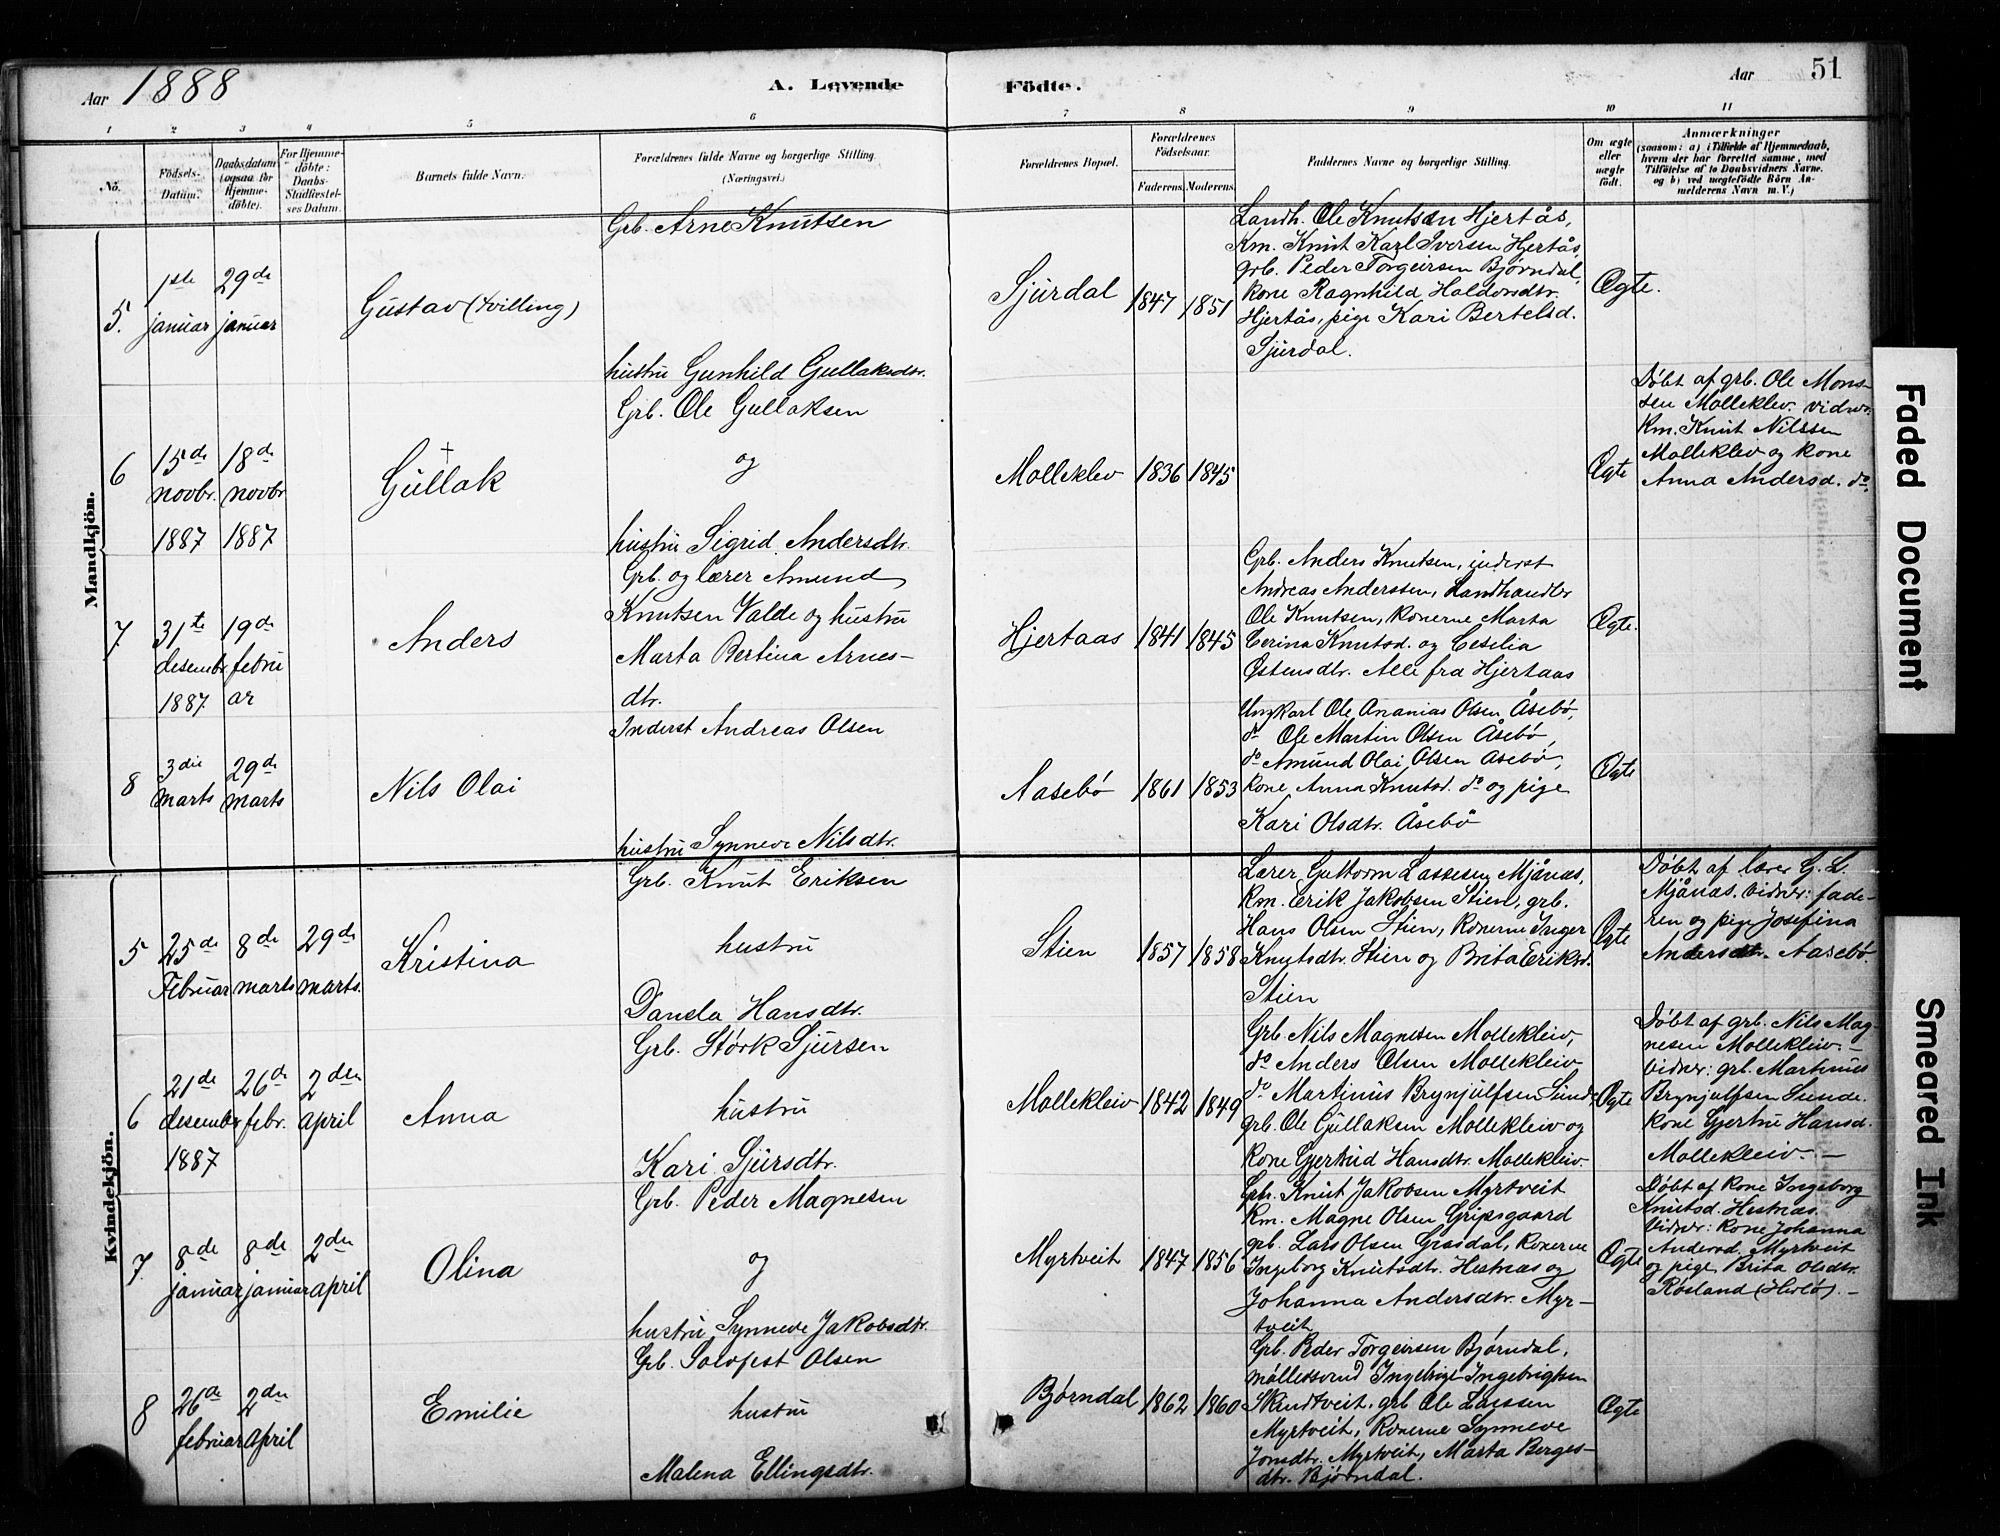 Aar 1888
A. Levende
Födte.
Aar
51
1
2
3
4
5
6
7
8
9
10
11
No.
Födsels-
Datum.
Daabsdatum
(ogsaa for
Hjemme-
döbte).
For Hjemme-
döbte:
Daabs-
Stadfæstel-
ses Datum.
Barnets fulde Navn.
Forældrenes fulde Navne og borgerlige Stilling.
(Næringsvei.)
Forældrenes Bopæl.
Forældrenes
Födselsaar.
Faderens.
Moderens.
Faddernes Navne og borgerlige Stilling.
Om ægte
eller
uægte
födt.
Anmærkninger
(saasom: a) i Tilfælde af Hjemmedaab,
hvem der har forrettet samme, med
Tilföielse af to Daabsvidners Navne.
og b) ved uægtefödte Börn An-
melderens Navn m. V.)
Mandkjön.
5.
1ste
januar
29de
januar
Gustav (tvilling)
Grb. Arne Knutsen
hustru Gunhild Gullaksdtr.
Sjurdal
1847
1851
Landh. Ole Knutsen Hjertås,
Km. Knut Karl Iversen Hjertås,
grb. Peder Torgeirsen Bjørndal,
kone Ragnhild Haldorsdtr.
Hjertås, pige Kari Bertelsd.
Sjurdal.
Ægte.
6
15de
novbr.
1887
18de
novbr
1887
†
Gullak
Grb. Ole Gullaksen
og
hustru Sigrid Andersdtr.
Molleklev
1836
1845
Ægte
Døbt af grb. Ole Mons-
sen Molleklev. vidner.
Km. Knut Nilssen
Molleklev og kone
Anna Andersd. do.
7
31te
desembr.
1887.
19de
febru
ar
Anders
Grb. og lærer Amund
Knutsen Valde og hustru
Marta Bertina Arnes-
dtr.
Hjertaas
1841
1845
Grb. Anders Knutsen, inderst
Andreas Anderssen, Landhandler
Ole Knutsen, konerne Marta
Cerina Knutsd. og Cesilia
Østensdtr. Alle fra Hjertaas
Ægte.
8
3die
marts
29de
marts
Nils Olai
Inderst Andreas Olsen
hustru Synneve Nilsdtr.
Aasebø
1861
1853
Ungkarl Ole Ananias Olsen Åsebø,
do Ole Martin Olsen Åsebø,
do Amund Olai Olsen Åsebø,
kone Anna Knutsd. do og pige
Kari Olsdtr. Åsebø
Ægte
Kvindekjön.
5
25de
Februar
8de
marts
29de
marts.
Kristina
Grb. Knut Eriksen
hustru
Danela Hansdtr.
Stien
1857
1858
Lærer Guttorm Lassesen Mjånæs,
Km. Erik Jakobsen Stien, grb.
Hans Olsen Stien, konerne Inger
Knutsdtr. Stien og Brita Eriksd.
Stien
Ægte
Døbt af lærer G. L.
Mjånæs. Vidner: fade-
ren og pige Josefina
Andersdtr. Aasebø.
6
21de
desember
1887
26de
febr.
2den
april
Anna
Grb. Størk Sjursen
hustru
Kari Sjursdtr.
Mollekleiv
1842
1849
Grb. Nils Magnesen Mollekleiv,
do Anders Olsen Mollekleiv
do Martinus Brynjulfsen Sunde,
grb. Ole Gullaksen Mollekleiv og
kone Gjertrud Hansdtr. Mollekleiv.
Ægte
Døbt af grb. Nils Mag-
nesen Mollekleiv. -
Vidner: grb. Martinus
Brynjulfsen Sunde.
kone Gjertru Hansd.
Mollekleiv. -
7.
8de
januar
8de
januar
2den
april
Olina
Grb. Peder Magnesen
og
hustru Synneve Jakobsdtr.
Myrtveit
1847
1856
Grb. Knut Jakobsen Myrtveit
Km. Magne Olsen Gripsgaard
grb. Lars Olsen Grasdal, konerne
Ingeborg Knutsdtr. Hestnæs og
Johanna Andersdtr. Myr-
tveit
Ægte
Døbt af kone Ingeborg
Knutsd. Hestnæs.
Vidner: kone Johanna
Andersd. Myrtveit
og pige Brita Olsdtr.
Røsland (Herlø). -
8
26de
februar
2den
april
Emilie
Grb. Solvfest Olsen
hustru
Malena Ellingsdtr.
Bjørndal
1862
1860
Grb. Peder Torgeirsen Bjørndal,
møllesvend Ingebrigt Ingebrigtsen
Skindtveit. grb Ole Larssen
Myrtveit, konerne Synneve
Jonsdtr. Myrtveit, Marta Berges-
dtr. Bjørndal.
Ægte
Faded Document
Smeared Ink